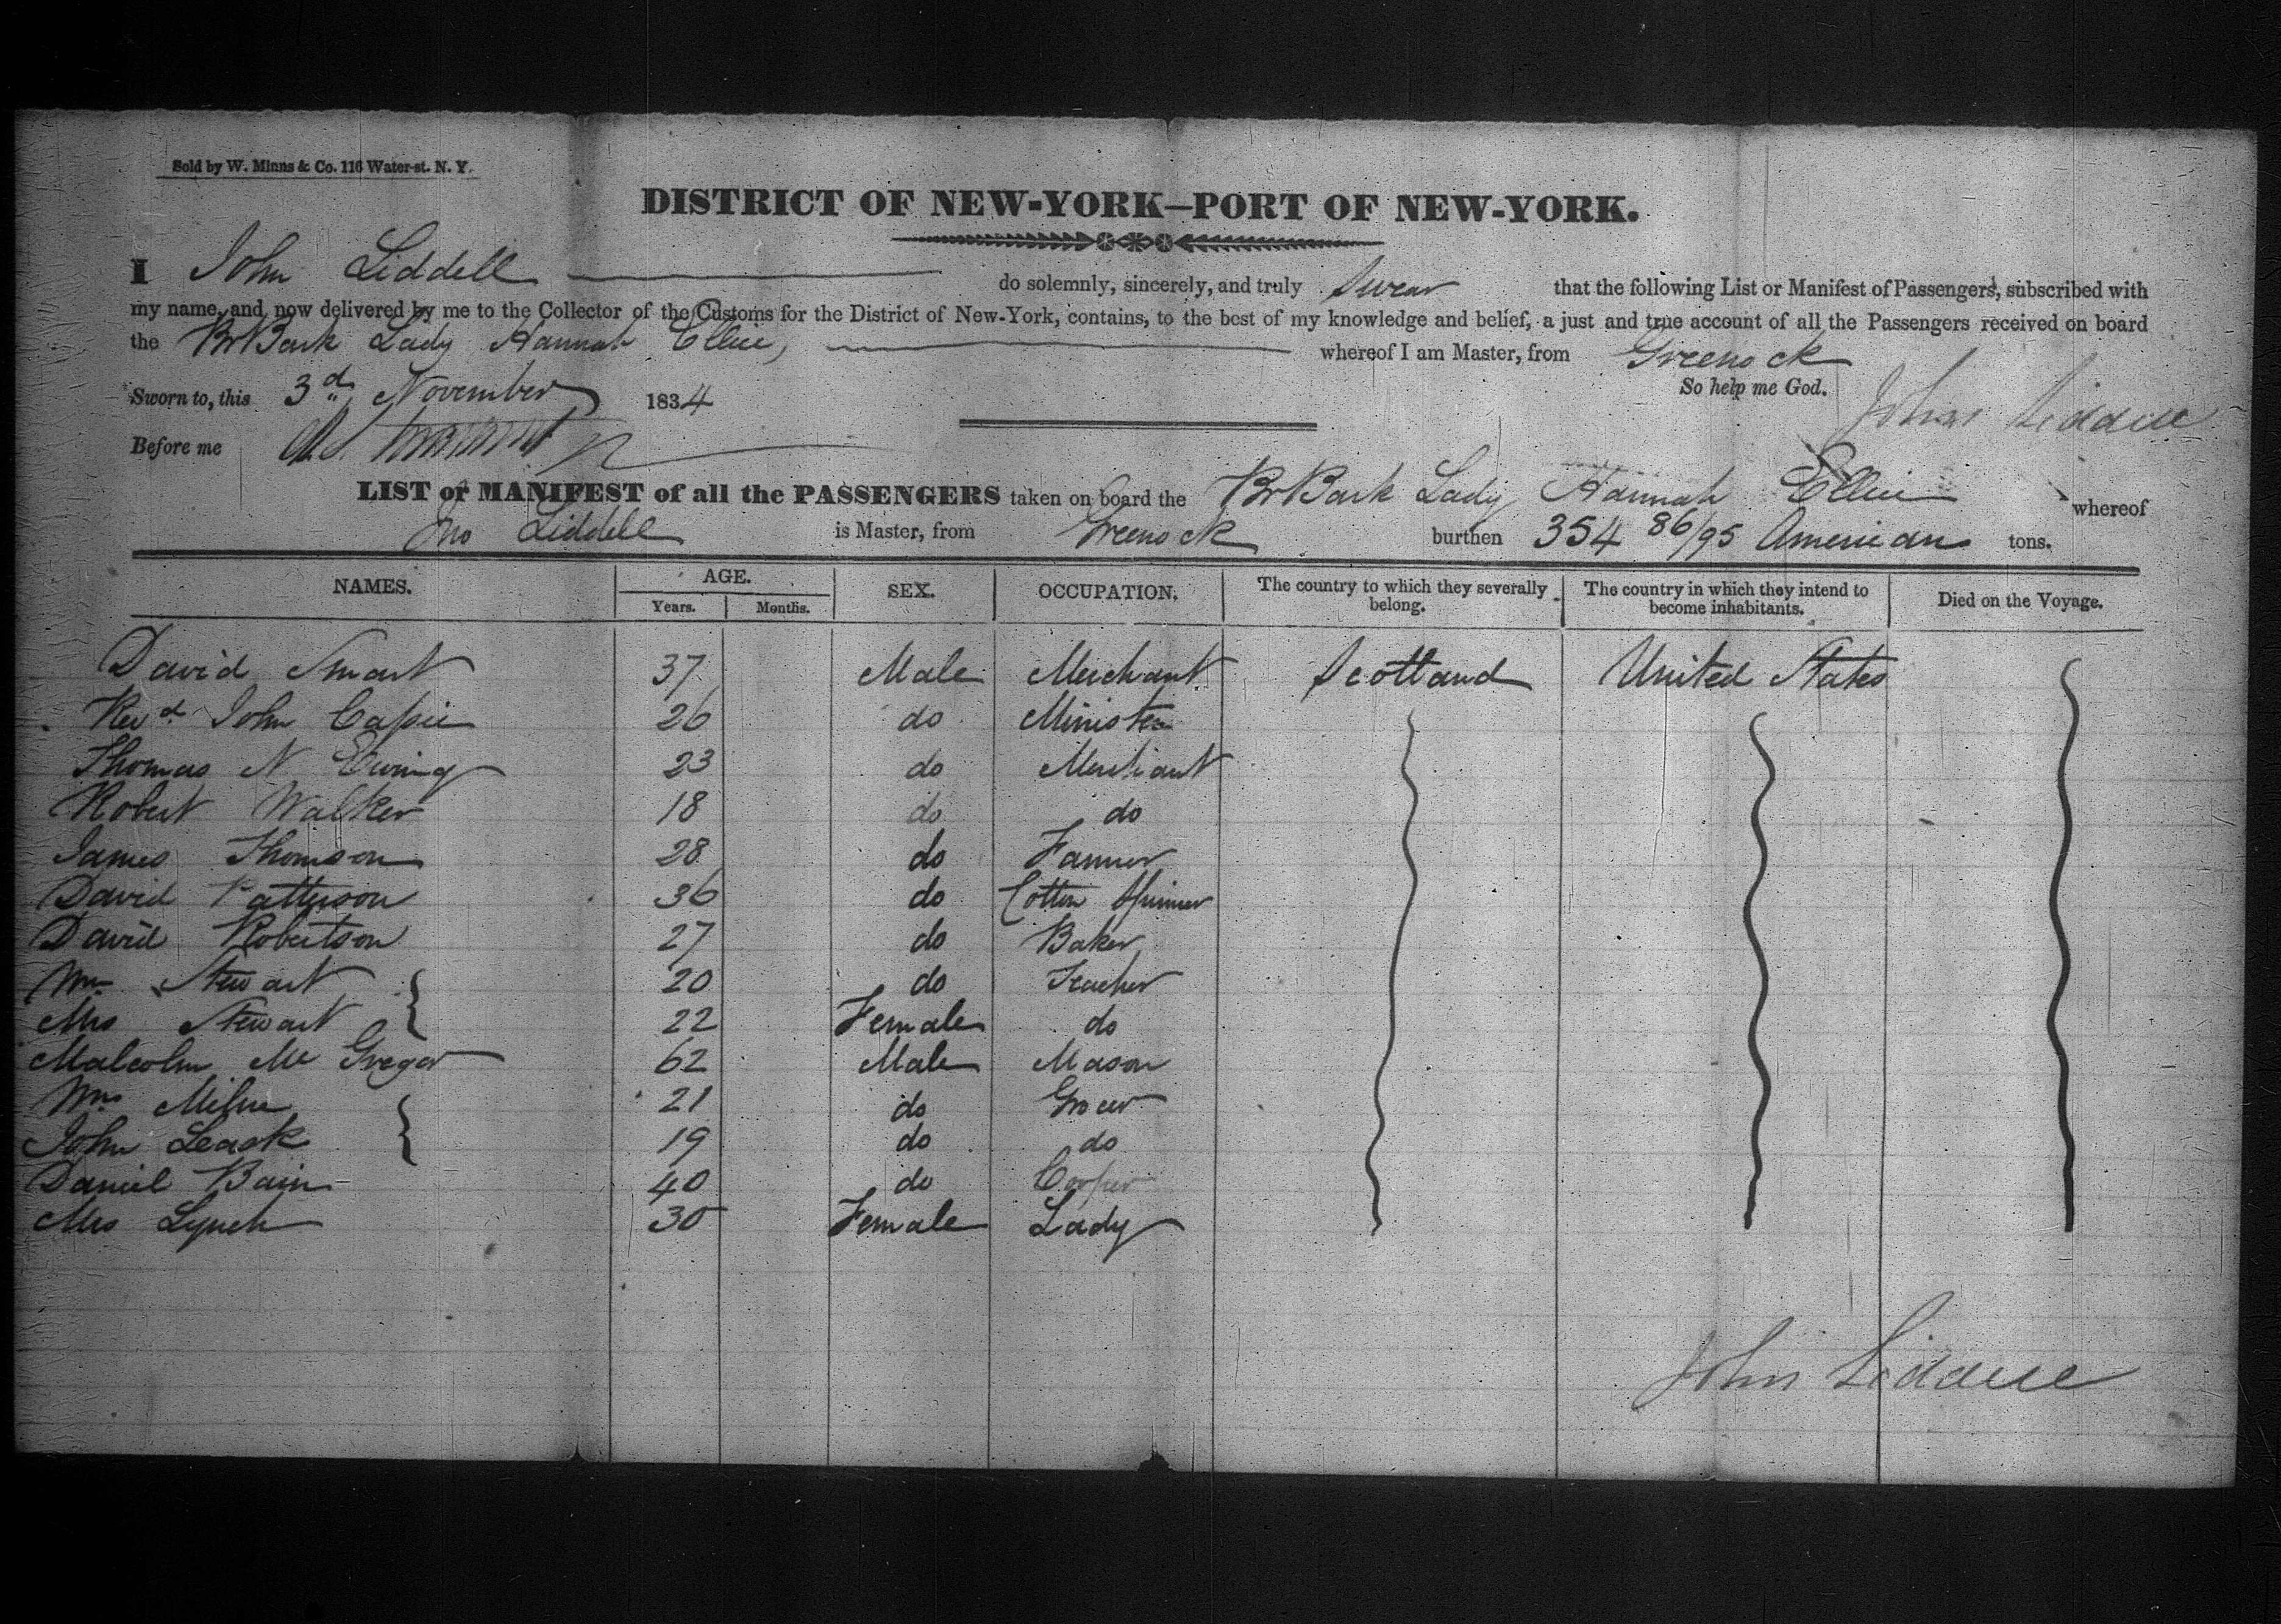 Sold by W. Minns & Co. 116 Water-st. N. Y.
DISTRICT OF NEW-YORK—PORT OF NEW-YORK.
I John Liddell do solemnly, sincerely, and truly Swear that the following List or Manifest of Passengers, subscribed with
my name, and now delivered by me to the Collector of the Customs for the District of New-York, contains, to the best of my knowledge and belief, a just and true account of all the Passengers received on board
the Br Bark Lady Hannah Ellice, whereof I am Master, from Greenock
Sworn to, this 3d November 1834 So help me God.
John Liddell
Before me
LIST or MANIFEST of all the PASSENGERS taken on board the Br Bark Lady Hannah Ellice whereof
Jno Liddell is Master, from Greenock burthen 354 86/95 American tons.
NAMES. AGE. SEX. OCCUPATION. The country to which they severally belong. The country in which they intend to become inhabitants. Died on the Voyage.
Years. Months.
David Smart 37 Male Merchant Scotland United States
Revd John 26 do Minister
Thomas N Ewing 23 do Merchant
Robert Walker 18 do do
James Thomson 28 do Farmer
David Patterson 36 do Cotton Spinner
David Robertson 27 do Baker
Wm Stewart 20 do Teacher
Mrs Stewart 22 Female do
Malcolm Mc Gregor 62 Male Mason
Wm Milne 21 do Grocer
John Leask 19 do do
Daniel Bain 40 do Cooper
Mrs Lynch 30 Female Lady
John Liddell